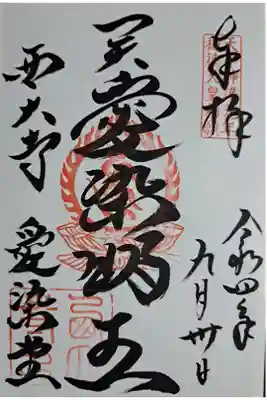 奉拝
令和四年
九月卅日
愛染明王
西大寺
愛染堂